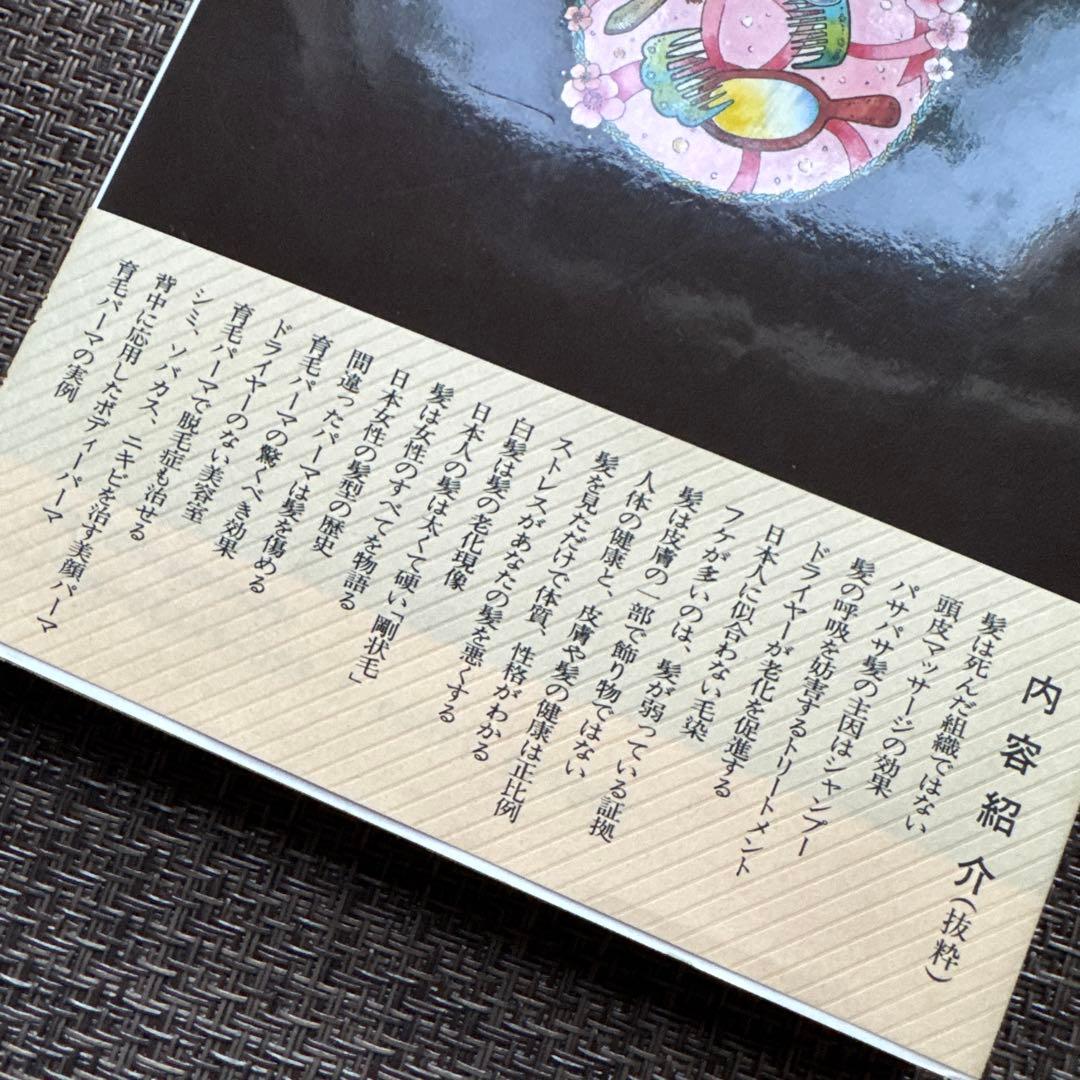 内容紹介(抜粋)
髪は死んだ組織ではない
頭皮マッサージの効果
パサパサ髪の主因はシャンプー
髪の呼吸を妨害するトリートメント
ドライヤーが老化を促進する
日本人に似合わない毛染
フケが多いのは、髪が弱っている証拠
髪は皮膚の一部で飾り物ではない
人体の健康と、皮膚や髪の健康は正比例
髪を見ただけで体質、性格がわかる
ストレスがあなたの髪を悪くする
白髪は髪の老化現像
日本人の髪は太くて硬い「剛状毛」
髪は女性のすべてを物語る
日本女性の髪型の歴史
間違ったパーマは髪を傷める
育毛パーマの驚くべき効果
ドライヤーのない美容室
育毛パーマで脱毛症も治せる
シミ、ソバカス、ニキビを治す美顔パーマ
背中に応用したボディーパーマ
育毛パーマの実例